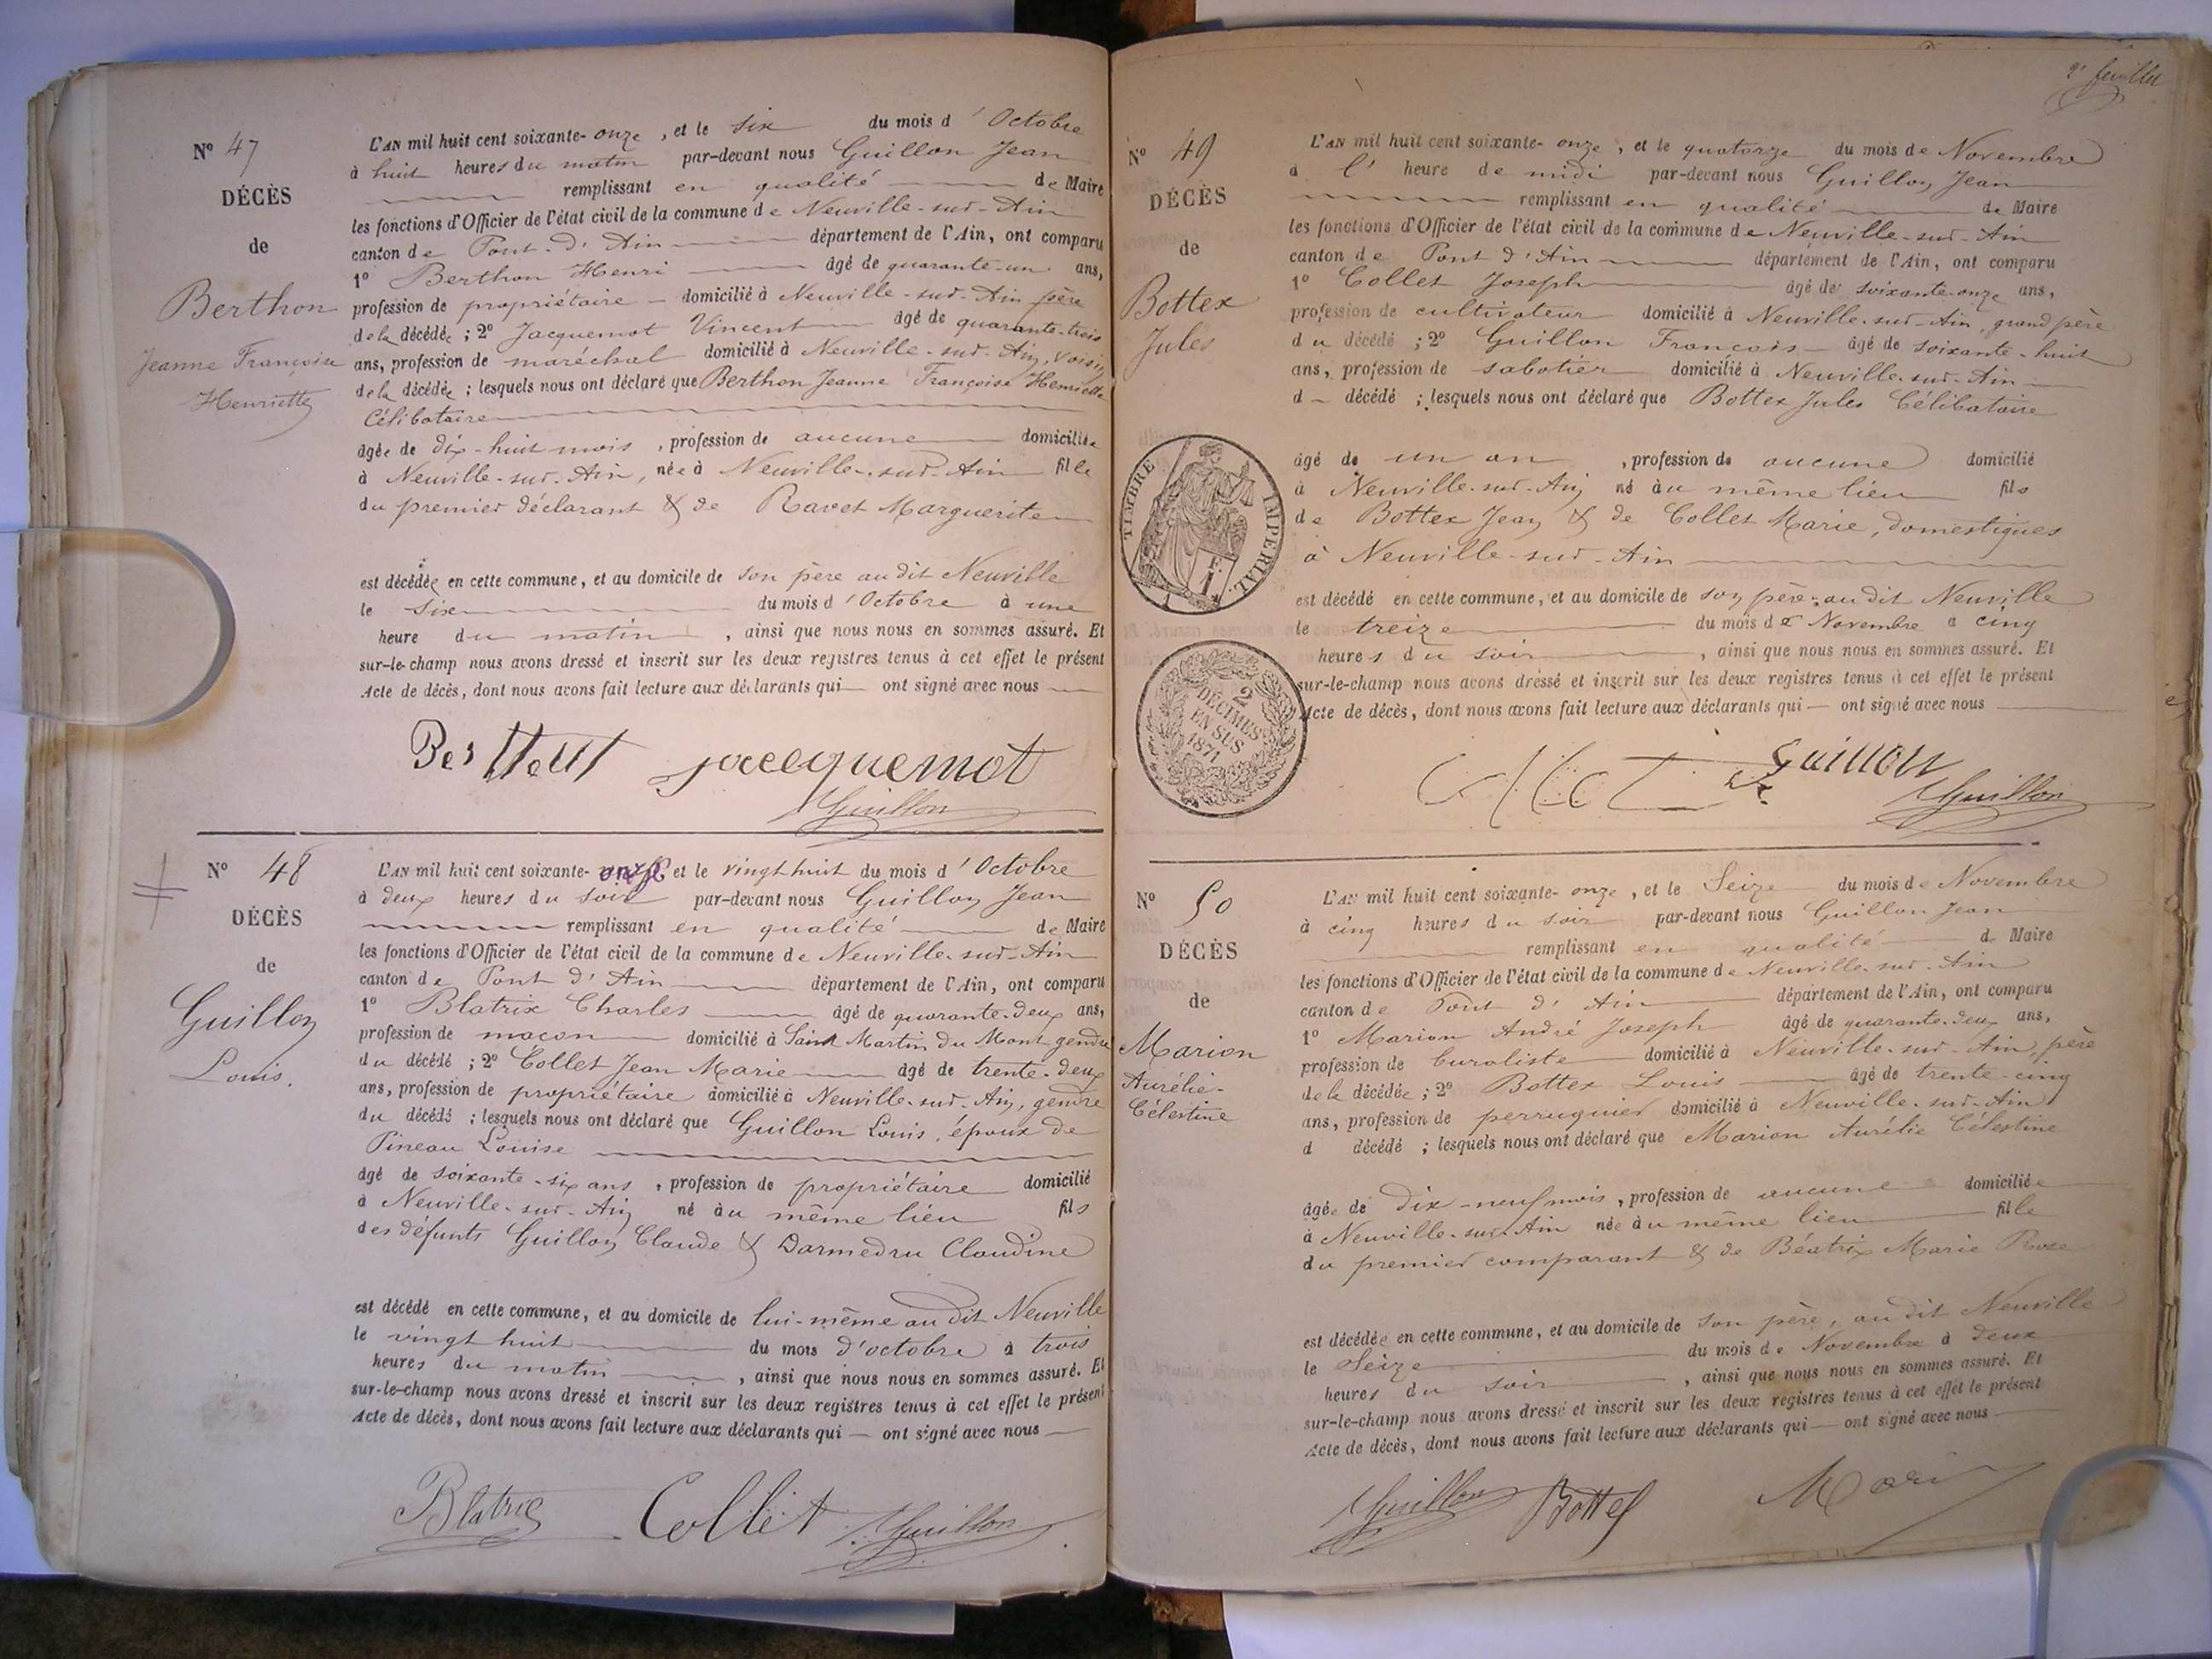 Nº 47
DÉCÈS
de
Berthon
Jeanne Françoise
Henriette
L'AN mil huit cent soixante- onze , et le six du mois d'Octobre
à huit heures du matin par-devant nous Guillon Jean
remplissant en qualité de Maire
les fonctions d'Officier de l'état civil de la commune de Neuville-sur-Ain
canton de Pont-d'Ain département de l'Ain, ont comparu
1º Berthon Henri âgé de quarante-un ans,
profession de propriétaire domicilié à Neuville-sur-Ain père
de la décédée ; 2º Jacquemot Vincent âgé de quarante-trois
ans, profession de maréchal domicilié à Neuville-sur-Ain, voisin
de la décédée ; lesquels nous ont déclaré que Berthon Jeanne Françoise Henriette
Célibataire
âgée de dix-huit mois , profession de aucune domiciliée
à Neuville-sur-Ain, née à Neuville-sur-Ain fille
du premier déclarant & de Ravet Marguerite
est décédée en cette commune, et au domicile de son père au dit Neuville
le six du mois d'Octobre à une
heure du matin , ainsi que nous nous en sommes assuré. Et
sur-le-champ nous avons dressé et inscrit sur les deux registres tenus à cet effet le présent
Acte de décès, dont nous avons fait lecture aux déclarants qui ont signé avec nous
Jacequemot
Guillon
Nº 48
DÉCÈS
de
Guillon
Louis.
L'AN mil huit cent soixante- onze et le vingt huit du mois d'Octobre
à deux heures du soir par-devant nous Guillon Jean
remplissant en qualité de Maire
les fonctions d'Officier de l'état civil de la commune de Neuville-sur-Ain
canton de Pont d'Ain département de l'Ain, ont comparu
1º Blatrix Charles âgé de quarante-deux ans,
profession de maçon domicilié à Saint Martin du Mont gendre
du décédé ; 2º Collet Jean Marie âgé de trente-deux
ans, profession de propriétaire domicilié à Neuville-sur-Ain, gendre
du décédé ; lesquels nous ont déclaré que Guillon Louis, époux de
Pineau Louise
âgé de soixante-six ans , profession de propriétaire domicilié
à Neuville-sur-Ain né au même lieu fils
des défunts Guillon Claude & Darmedru Claudine
est décédé en cette commune, et au domicile de lui-même au dit Neuville
le vingt huit du mois d'octobre à trois
heures du matin , ainsi que nous nous en sommes assuré. Et
sur-le-champ nous avons dressé et inscrit sur les deux registres tenus à cet effet le présent
Acte de décès, dont nous avons fait lecture aux déclarants qui — ont signé avec nous
Blatrix Collet Guillon
2e feuillet
Nº 49
DÉCÈS
de
Bottex
Jules
L'AN mil huit cent soixante- onze , et le quatorze du mois de Novembre
à l' heure de midi par-devant nous Guillon Jean
remplissant en qualité de Maire
les fonctions d'Officier de l'état civil de la commune de Neuville-sur-Ain
canton de Pont d'Ain département de l'Ain, ont comparu
1º Collet Joseph âgé de soixante-onze ans,
profession de cultivateur domicilié à Neuville-sur-Ain, grand père
du décédé ; 2º Guillon François âgé de soixante-huit
ans, profession de sabotier domicilié à Neuville-sur-Ain
d — décédé ; lesquels nous ont déclaré que Bottex Jules Célibataire
âgé de un an , profession de aucune domicilié
à Neuville-sur-Ain né au même lieu fils
de Bottex Jean & de Collet Marie, domestiques
à Neuville-sur-Ain
est décédé en cette commune, et au domicile de son père au dit Neuville
le treize du mois de Novembre à cinq
heures du soir , ainsi que nous nous en sommes assuré. Et
sur-le-champ nous avons dressé et inscrit sur les deux registres tenus à cet effet le présent
Acte de décès, dont nous avons fait lecture aux déclarants qui — ont signé avec nous
TIMBRE IMPERIAL
1 F.
2
DÉCIMES
EN SUS
1871
Guillon
Guillon
Nº 50
DÉCÈS
de
Marion
Aurélie-
Célestine
L'AN mil huit cent soixante- onze , et le Seize du mois de Novembre
à cinq heures du soir par-devant nous Guillon Jean
remplissant en qualité de Maire
les fonctions d'Officier de l'état civil de la commune de Neuville-sur-Ain
canton de Pont d'Ain département de l'Ain, ont comparu
1º Marion André Joseph âgé de quarante-deux ans,
profession de buraliste domicilié à Neuville-sur-Ain, père
de la décédée ; 2º Bottex Louis âgé de trente-cinq
ans, profession de perruquier domicilié à Neuville-sur-Ain
d décédé ; lesquels nous ont déclaré que Marion Aurélie Célestine
âgée de dix-neuf mois , profession de aucune domiciliée
à Neuville-sur-Ain née au même lieu fille
du premier comparant & de Béatrix Marie Rose
est décédée en cette commune, et au domicile de son père, au dit Neuville
le Seize du mois de Novembre à deux
heures du soir , ainsi que nous nous en sommes assuré. Et
sur-le-champ nous avons dressé et inscrit sur les deux registres tenus à cet effet le présent
Acte de décès, dont nous avons fait lecture aux déclarants qui — ont signé avec nous
Guillon Bottex